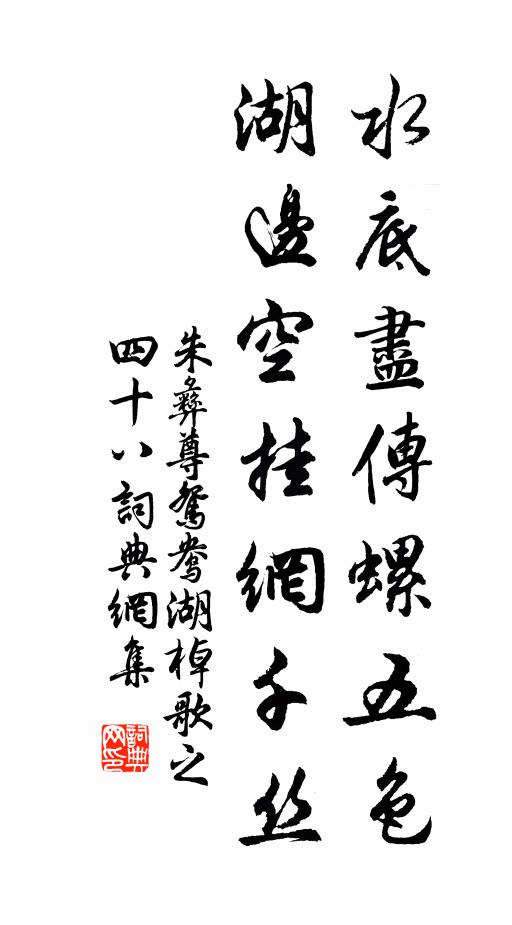 水底盡傳螺五色
湖邊空挂網千丝
朱彝尊鴛鴦湖棹歌之
四十八詞典網集
詞典
网印